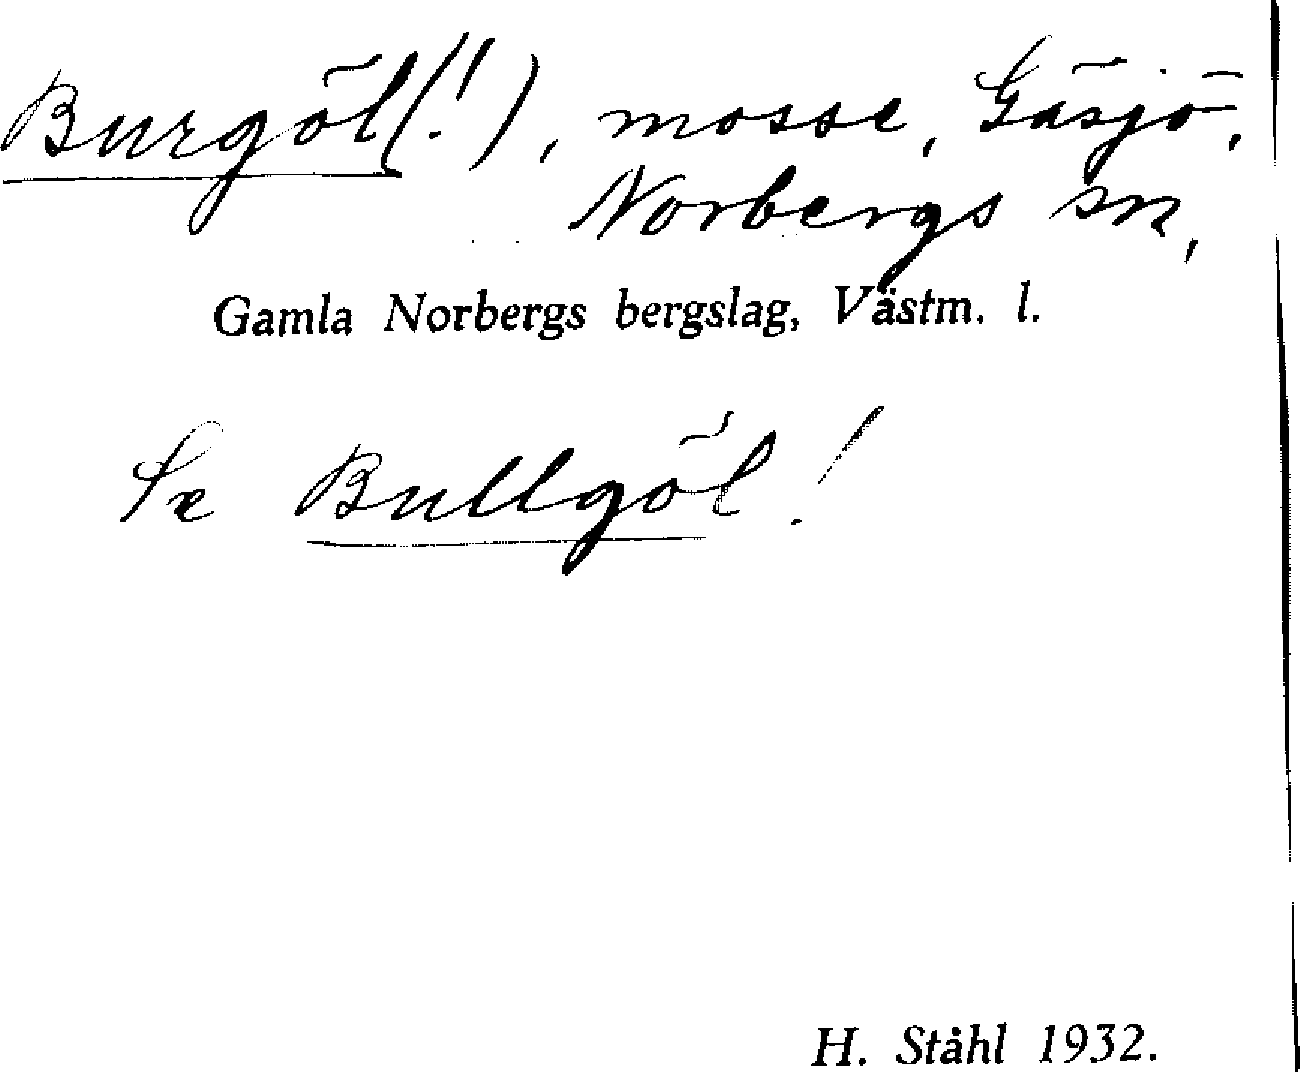 Burgöl(!), mosse, Gäsjö,
Norbergs sn,
Gamla Norbergs bergslag, Västm. l.
Se Bullgöl!
H. Ståhl 1932.